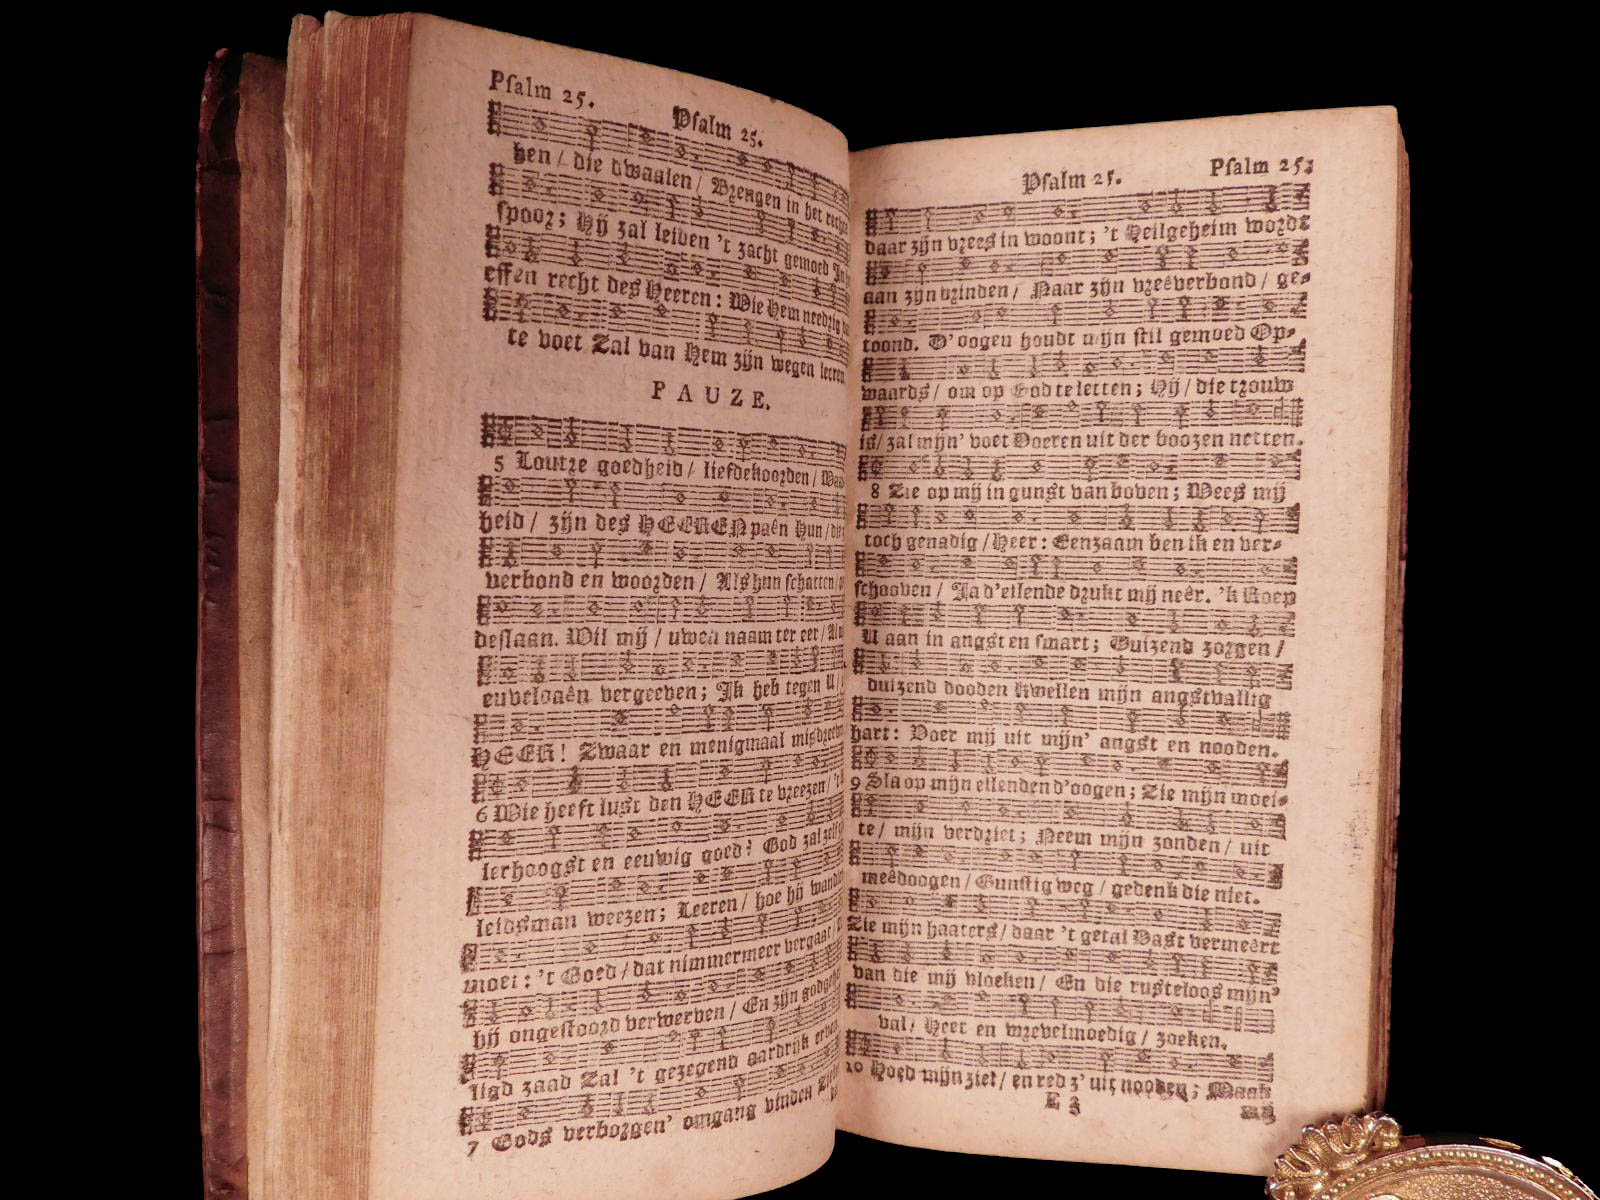 Psalm 25.
Psalm 25.
hen / die dwaalen / Brengen in het rechte
spoor; Hij zal leiden 't zacht gemoed In
effen recht des Heeren: Wie Hem needrig
te voet Zal van Hem zijn wegen leeren
PAUZE.
5 Loutre goedheid / liefdekoorden / Waar
heid / zijn des HEEREN paên Hun / die
verbond en woorden / Als hun schatten /
deslaan. Wil mij / uwen naam ter eer / Al
euveldaên vergeeven; Ik heb tegen U /
HEER! Zwaar en menigmaal misdreeven
6 Wie heeft lust den HEER te vreezen / 't
lerhoogst en eeuwig goed? God zal zelf
leidsman weezen; Leeren / hoe hij wandlen
moet: 't Goed / dat nimmermeer vergaat /
hij ongestoord verwerven / En zijn godgehei
ligd zaad Zal 't gezegend aardrijk erven
7 Gods verborgen' omgang vinden Zielen
Psalm 25.
Psalm 25.
daar zijn vrees in woont; 't Heilgeheim wordt
aan zijn vrinden / Naar zijn vreêverbond / ge-
toond. D'oogen houdt mijn stil gemoed Op-
waards / om op God te letten; Hij / die trouw
is / zal mijn' voet Voeren uit der boozen netten.
8 Zie op mij in gunst van boven; Wees mij
toch genadig / Heer: Eenzaam ben ik en ver-
schooven / Ja d'ellende drukt mij neêr. 'k Roep
U aan in angst en smart; Duizend zorgen /
duizend dooden kwellen mijn angstvallig
hart: Voer mij uit mijn' angst en nooden.
9 Sla op mijn ellenden d'oogen; Zie mijn moei-
te / mijn verdriet; Neem mijn zonden / uit
meêdoogen / Gunstig weg / gedenk die niet.
Zie mijn haaters / daar 't getal Vast vermeêrt
van die mij vloeken / En die rusteloos mijn'
val / Heet en wrevelmoedig / zoeken.
10 Hoed mijn ziel / en red z' uit nooden; Maak
E 3
mij